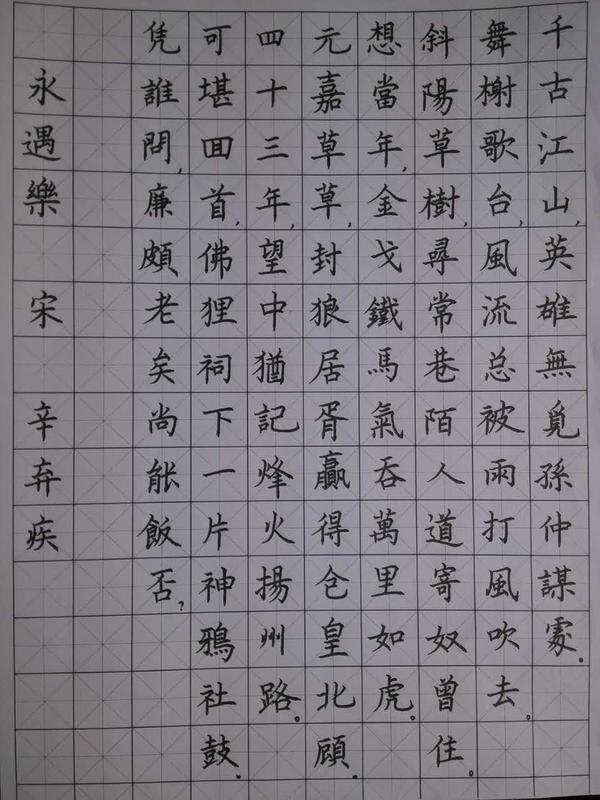 千古江山,英雄無覓孫仲謀處。
舞榭歌台,風流总被雨打風吹去。
斜陽草樹,尋常巷陌人道寄奴曾住。
想當年,金戈鐵馬氣吞萬里如虎。
元嘉草草,封狼居胥贏得仓皇北顧.
四十三年,望中猶記烽火揚州路。
可堪回首,佛狸祠下一片神鴉社鼓.
凭誰問,廉頗老矣尚能飯否?
永遇樂 宋 辛弃疾